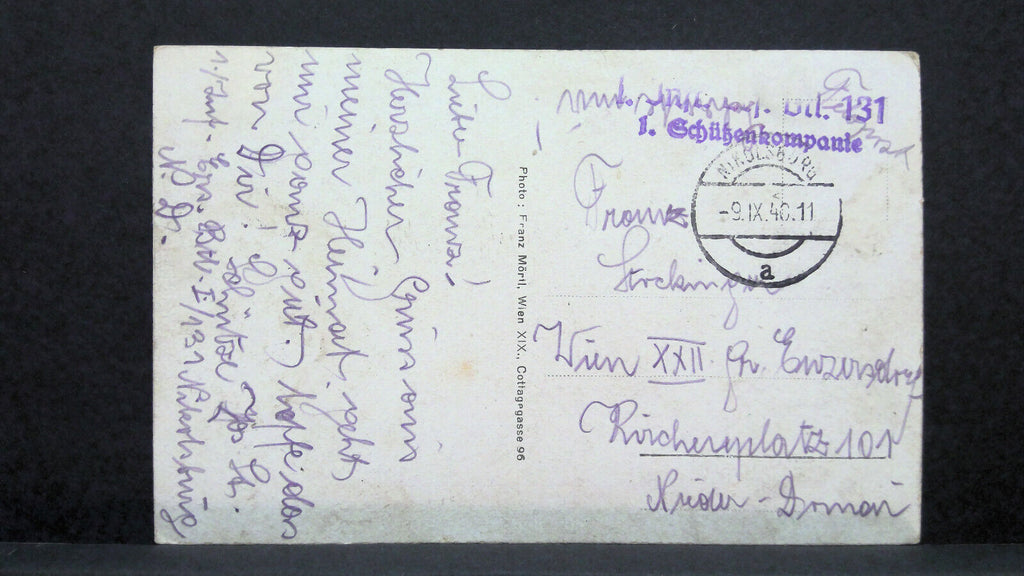 Liebe Franzi!
Herzlichen Gruss aus
meiner Heimat. geht
mir ganz gut. hoffe das
von Dir!
1. Ers. Btl. I/131 Nikolsburg
N. D.
Photo: Franz Mörtl, Wien XIX., Cottagegasse 96
Btl. 131
1. Schützenkompanie
NIKOLSBURG
-9.IX.40.11
a
Franz
Stockinger
Wien XXII. Gr. Enzersdorf
Kirchenplatz 101
Nieder-Donau